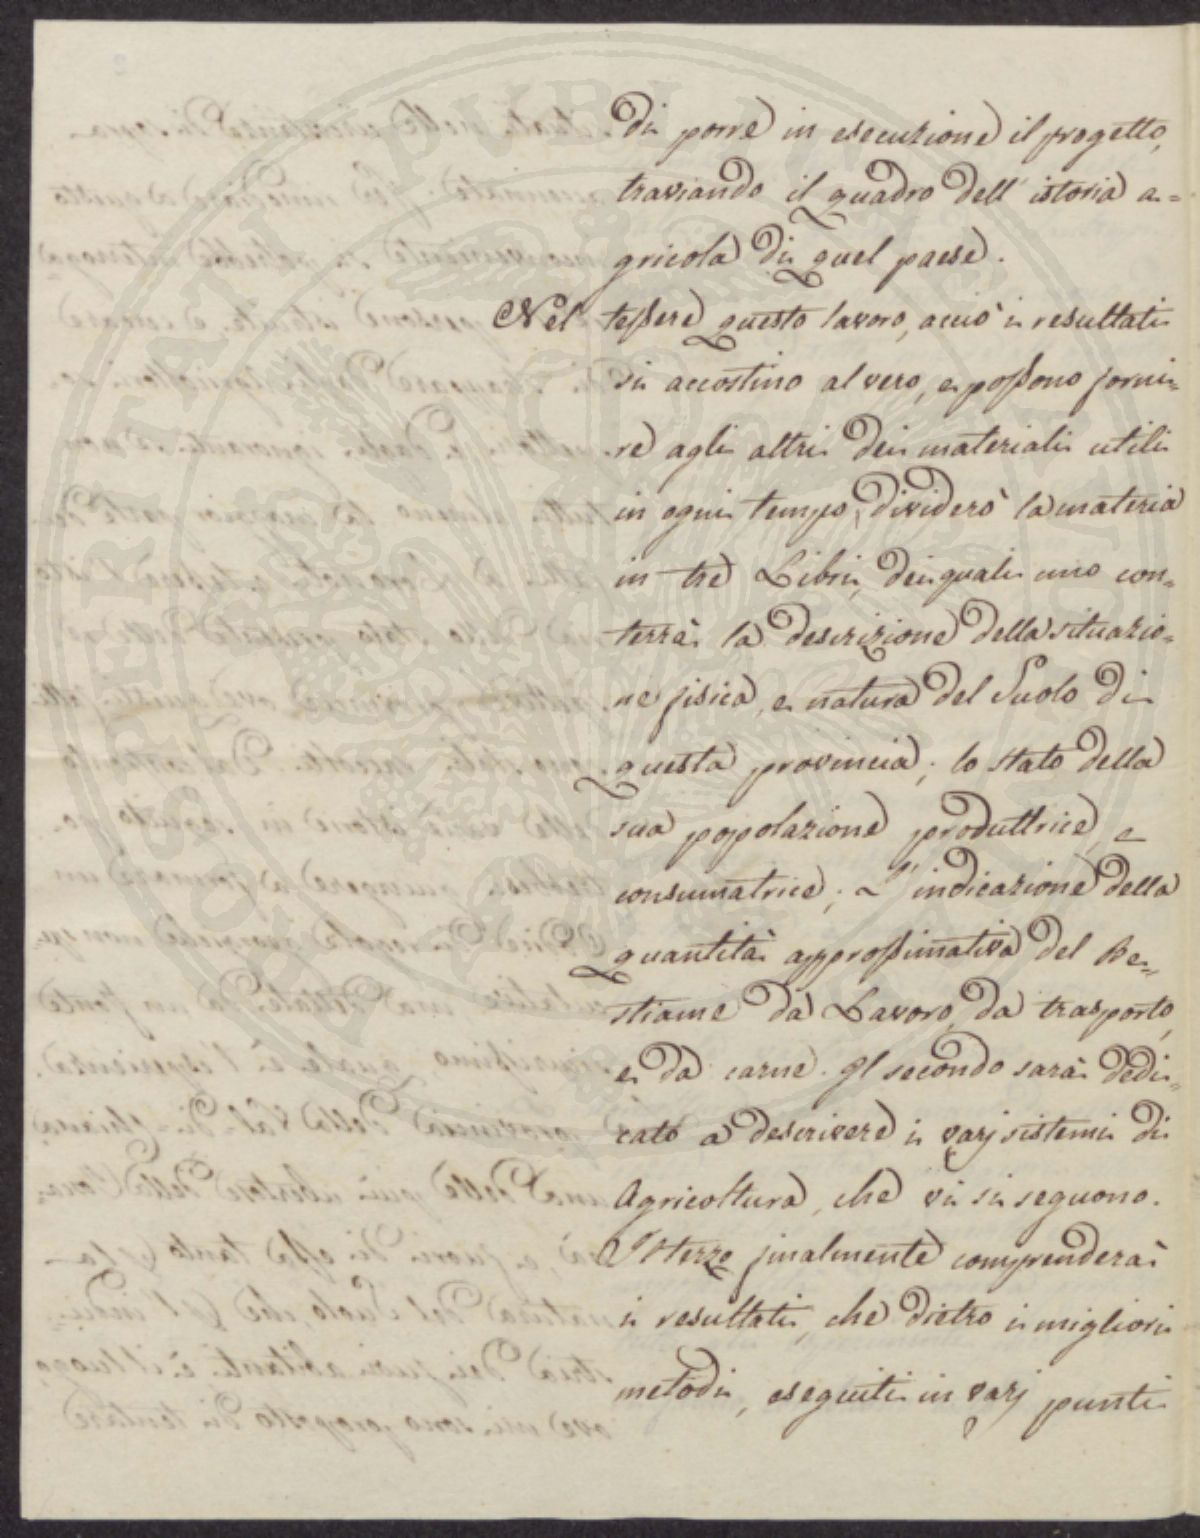 di porre in esecuzione il progetto,
traviando il quadro dell'istoria a=
gricola di quel paese.
Nel tessere questo lavoro, acciò i resultati
si accostino al vero, e possono forni=
re agli altri dei materiali utili
in ogni tempo, dividerò la materia
in tre Libri, dei quali uno con=
terrà la descrizione della situazio=
ne fisica, e natura del Suolo di
questa provincia; lo stato della
sua popolazione produttrice, e
consumatrice; L'indicazione della
quantità approssimativa del Be=
stiame da Lavoro, da trasporto,
e da carne. Il secondo sarà dedi=
cato a descrivere i varj sistemi di
Agricoltura, che vi si seguono.
Il terzo finalmente comprenderà
i resultati, che dietro i migliori
metodi, eseguiti in varj punti